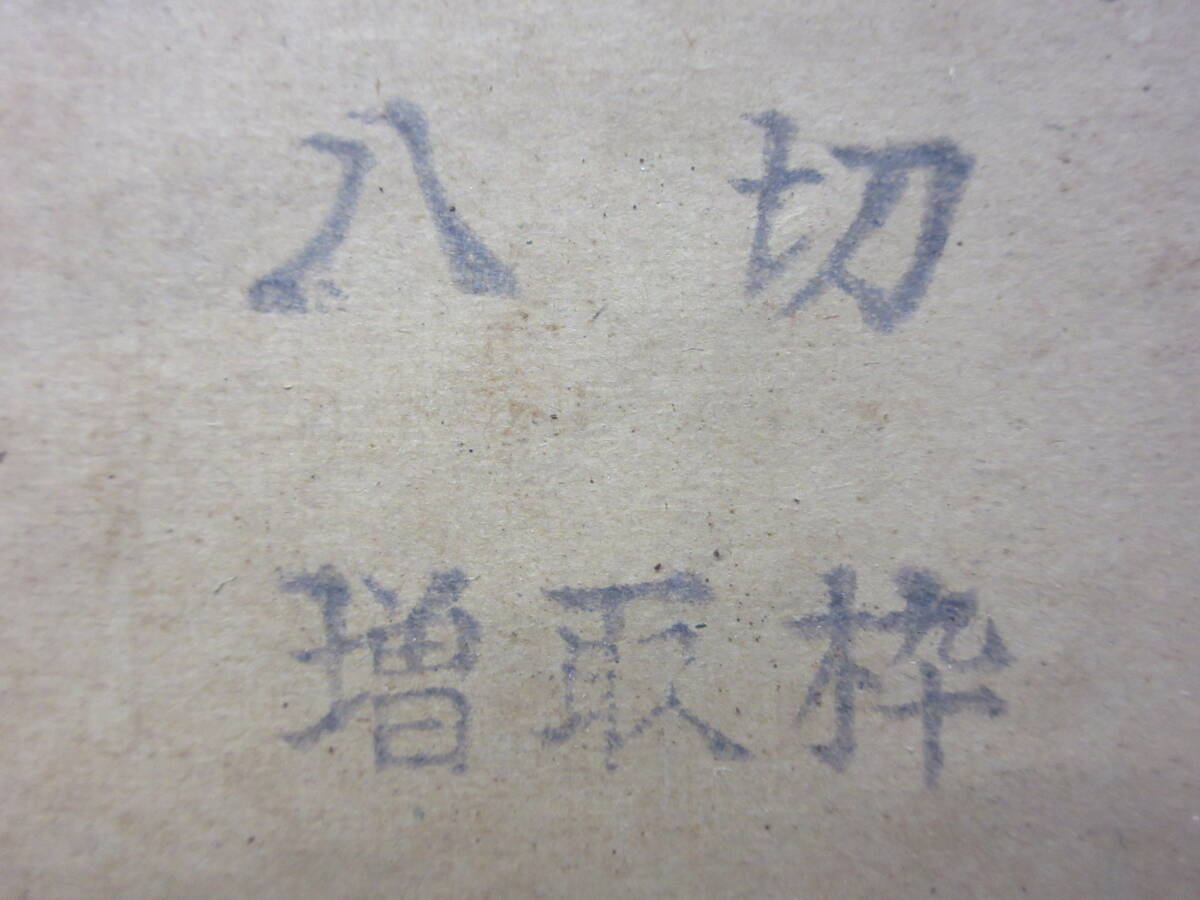 八切
増取枠